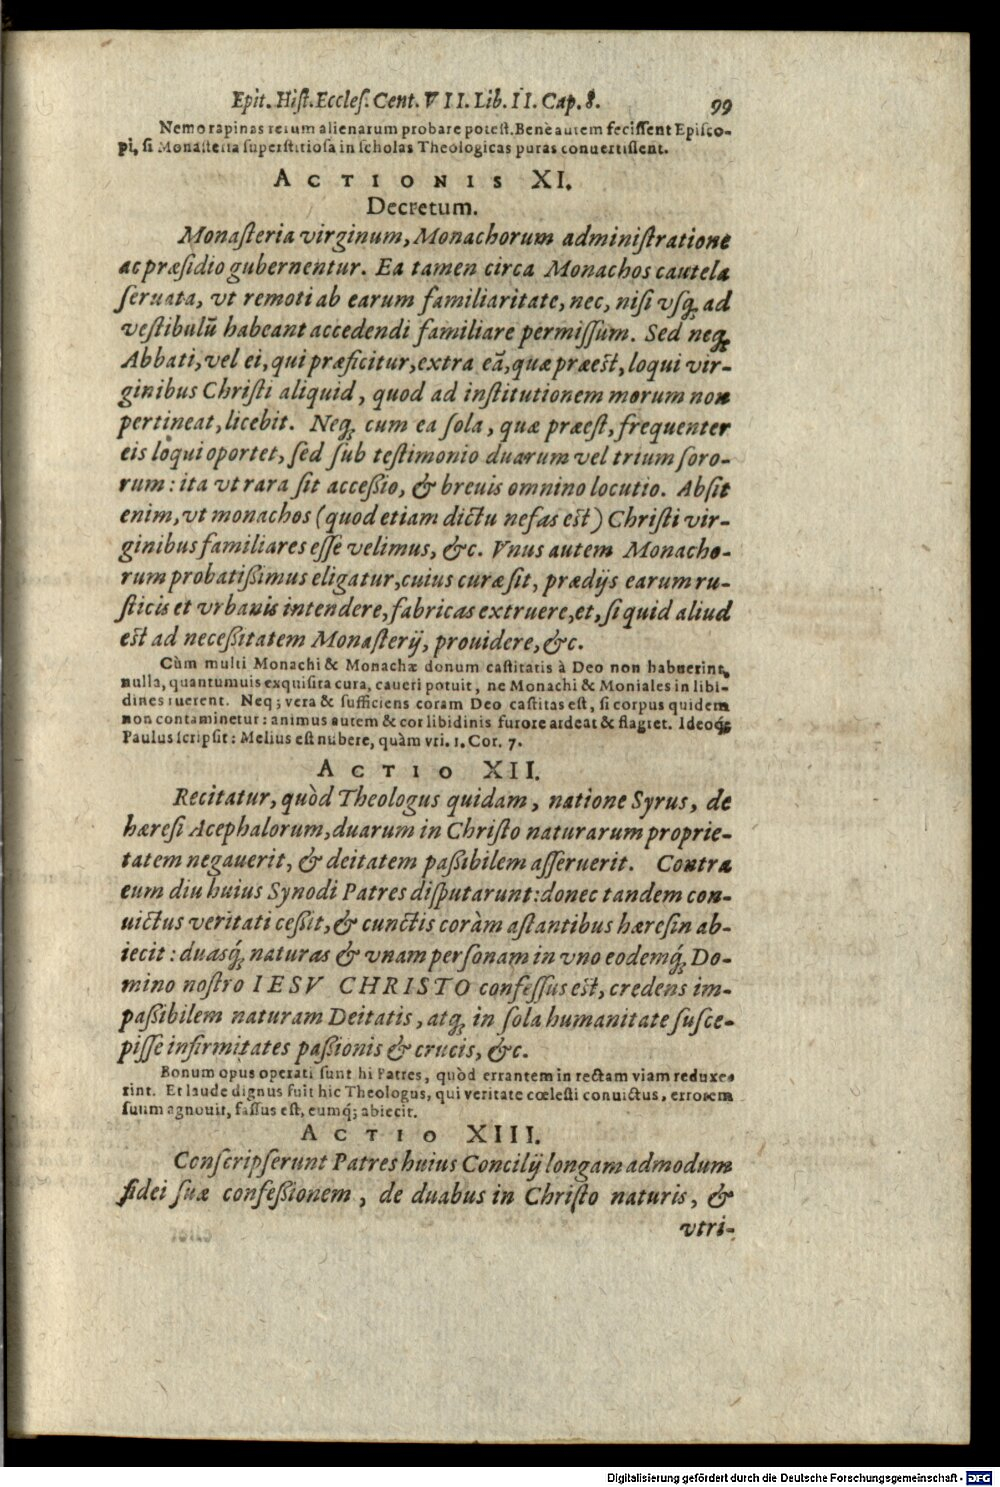 Epit. Hiſt. Eccleſ. Cent. VII. Lib. II. Cap. 8. 99
Nemo rapinas rerum alienarum probare poteſt. Benè autem feciſſent Epiſco-
pi, ſi Monaſteria ſuperſtitioſa in ſcholas Theologicas puras conuertiſſent.
ACTIONIS XI.
Decretum.
Monaſteria virginum, Monachorum adminiſtratione
ac præſidio gubernentur. Ea tamen circa Monachos cautela
ſeruata, vt remoti ab earum familiaritate, nec, niſi vſq; ad
veſtibulũ habeant accedendi familiare permiſſum. Sed neq;
Abbati, vel ei, qui præficitur, extra eã, quæ præeſt, loqui vir-
ginibus Chriſti aliquid, quod ad inſtitutionem morum non
pertineat, licebit. Neq; cum ea ſola, quæ præeſt, frequenter
eis loqui oportet, ſed ſub teſtimonio duarum vel trium ſoro-
rum: ita vt rara ſit acceßio, & breuis omnino locutio. Abſit
enim, vt monachos (quod etiam dictu nefas eſt) Chriſti vir-
ginibus familiares eſſe velimus, &c. Vnus autem Monacho-
rum probatißimus eligatur, cuius curæ ſit, prædijs earum ru-
ſticis et vrbanis intendere, fabricas extruere, et, ſi quid aliud
eſt ad neceßitatem Monaſterij, prouidere, &c.
Cùm multi Monachi & Monachæ donum caſtitatis à Deo non habuerint,
nulla, quantumuis exquiſita cura, caueri potuit, ne Monachi & Moniales in libi-
dines ruerent. Neq; vera & ſufficiens coram Deo caſtitas eſt, ſi corpus quidem
non contaminetur: animus autem & cor libidinis furore ardeat & flagret. Ideoq́;
Paulus ſcripſit: Melius eſt nubere, quàm vri. 1. Cor. 7.
ACTIO XII.
Recitatur, quòd Theologus quidam, natione Syrus, de
hæreſi Acephalorum, duarum in Chriſto naturarum proprie-
tatem negauerit, & deitatem paßibilem aſſeruerit. Contra
eum diu huius Synodi Patres diſputarunt: donec tandem con-
uictus veritati ceßit, & cunctis coràm aſtantibus hæreſin ab-
iecit: duasq́; naturas & vnam perſonam in vno eodemq́; Do-
mino noſtro IESV CHRISTO confeſſus eſt, credens im-
paßibilem naturam Deitatis, atq; in ſola humanitate ſuſce-
piſſe infirmitates paßionis & crucis, &c.
Bonum opus operati ſunt hi Patres, quòd errantem in rectam viam reduxe-
rint. Et laude dignus fuit hic Theologus, qui veritate cœleſti conuictus, errorem
ſuum agnouit, faſſus eſt, eumq́; abiecit.
ACTIO XIII.
Conſcripſerunt Patres huius Concilij longam admodum
fidei ſuæ confeßionem, de duabus in Chriſto naturis, &
vtri-
Digitalisierung gefördert durch die Deutsche Forschungsgemeinschaft - DFG